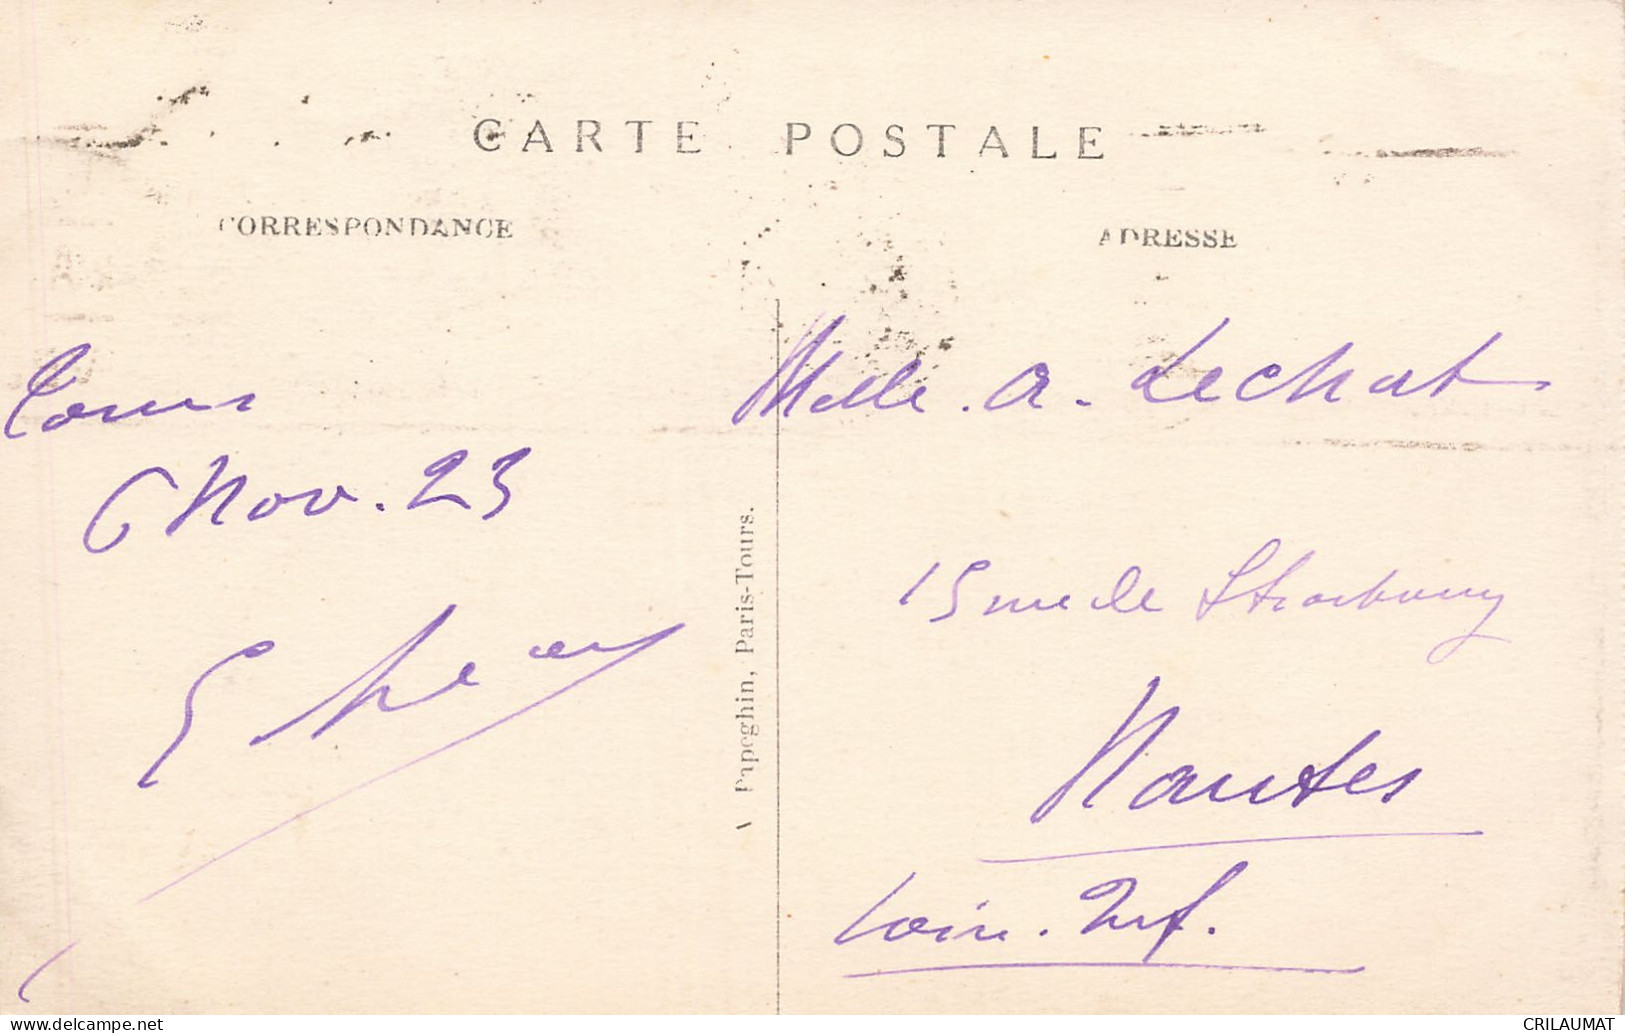 CARTE POSTALE
CORRESPONDANCE
ADRESSE
Tours
6 Nov. 23
A Papeghin, Paris-Tours.
Melle. A. Lechat
15 rue de Strasbourg
Nantes
Loire. Inf.
delcampe.net
CRILAUMAT